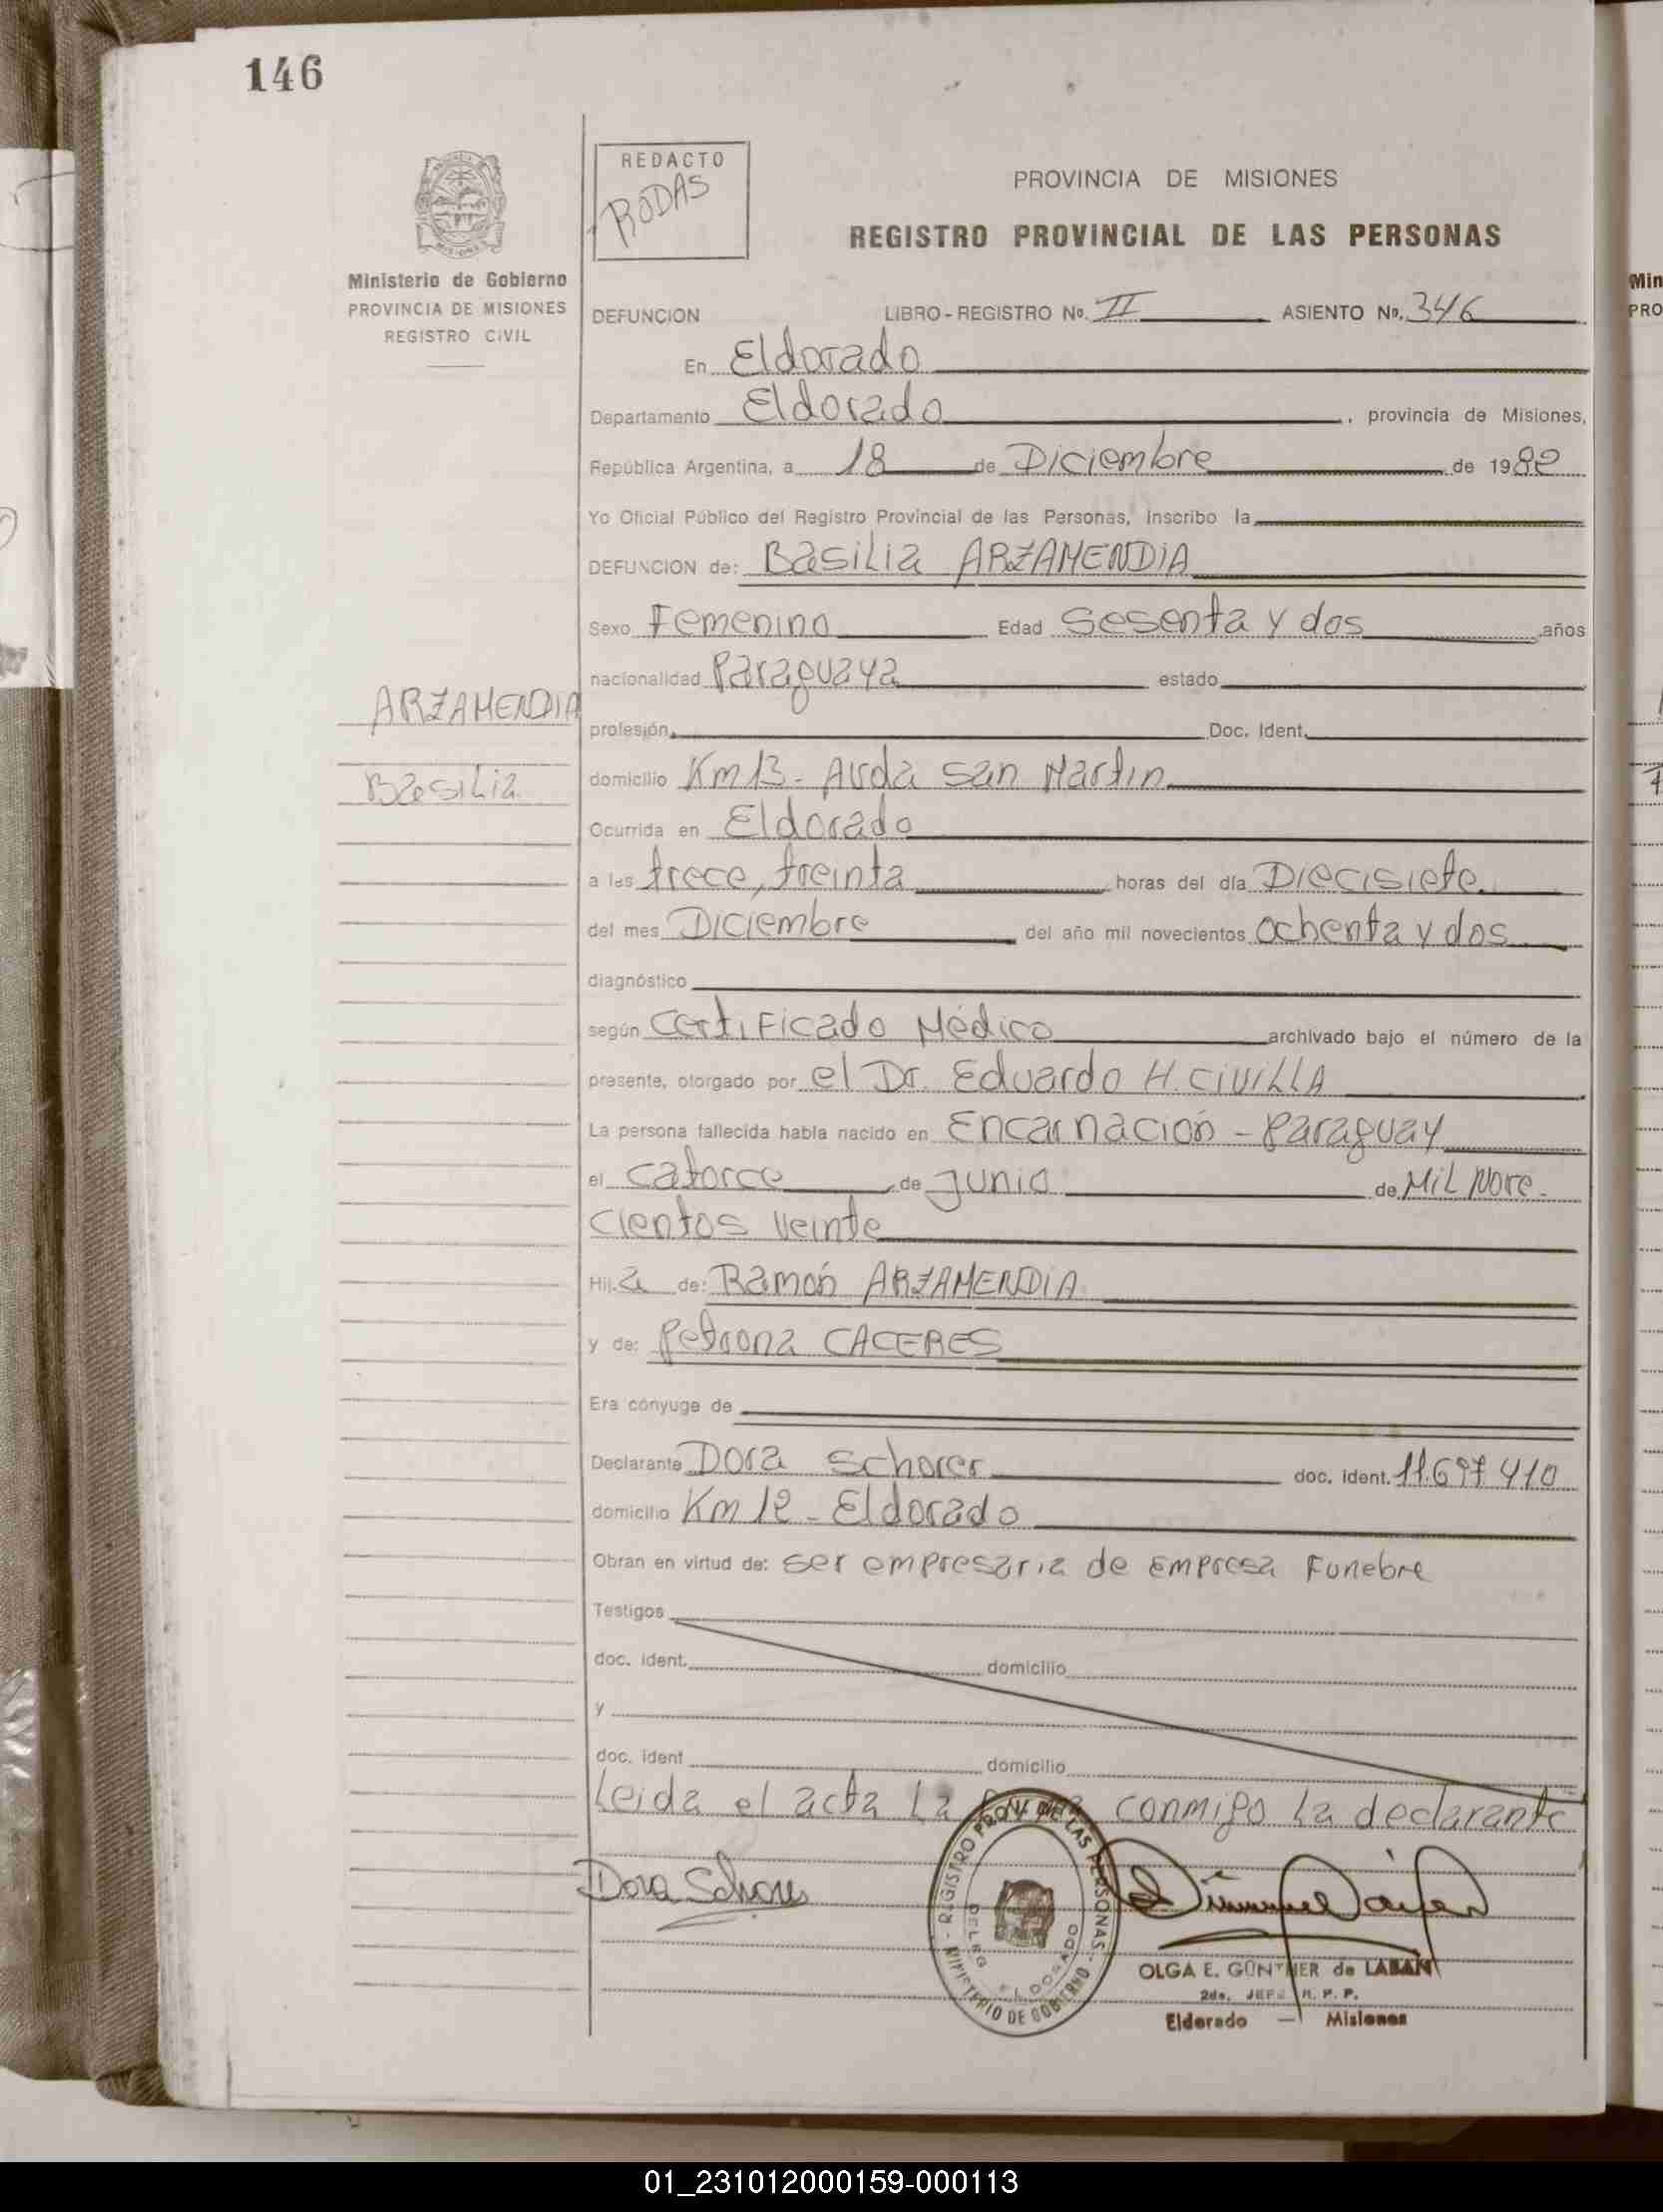 146
REDACTO
RODAS
PROVINCIA DE MISIONES
REGISTRO PROVINCIAL DE LAS PERSONAS
Ministerio de Gobierno
PROVINCIA DE MISIONES
REGISTRO CIVIL
DEFUNCION LIBRO - REGISTRO No. II ASIENTO No. 346
En Eldorado
Departamento Eldorado, provincia de Misiones,
República Argentina, a 18 de Diciembre de 1982
Yo Oficial Público del Registro Provincial de las Personas, inscribo la
DEFUNCION de: Basilia ARZAMENDIA
Sexo Femenino Edad Sesenta y dos años
nacionalidad Paraguaya estado
ARZAMENDIA
Basilia
profesión Doc. Ident.
domicilio Km 13 - Avda San Martin
Ocurrida en Eldorado
a las trece, treinta horas del día Diecisiete
del mes Diciembre del año mil novecientos ochenta y dos
diagnóstico
según Certificado Médico archivado bajo el número de la
presente, otorgado por el Dr. Eduardo H. CIVILLA
La persona fallecida había nacido en Encarnación - Paraguay
el catorce de junio de Mil Nove-
cientos veinte
Hij a de: Ramón ARZAMENDIA
y de: Petrona CACERES
Era cónyuge de
Declarante Dora Schorer doc. ident. 11.697.410
domicilio Km 12 - Eldorado
Obran en virtud de: ser empresaria de Empresa Funebre
Testigos
doc. ident. domicilio
y
doc. ident domicilio
Leida el acta la conmigo la declarante
Dora Schorer
REGISTRO PROV. DE LAS PERSONAS - MINISTERIO DE GOBIERNO -
DELEG ELDORADO
OLGA E. GÜNTHER de LABAN
2da. JEFE R. P. P.
Eldorado — Misiones
Min
PRO
01_231012000159-000113